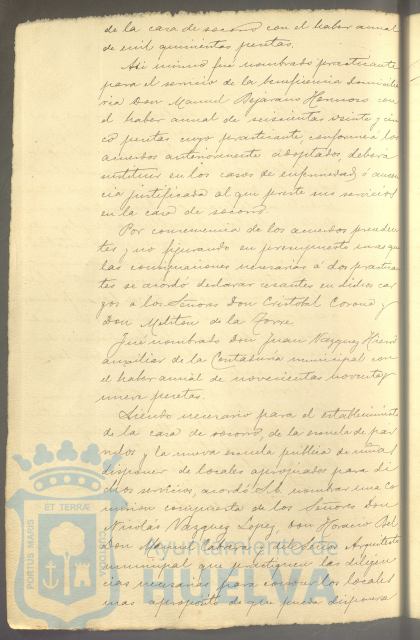 de la casa de socorro con el haber anual
de mil quinientas pesetas.
Asi mismo fué nombrado practicante
para el servicio de la beneficencia domicilia
ria Don Manuel Bejarano Hermoso con
el haber anual de seiscientas veinte y cin
co pesetas, cuyo practicante, conforme á los
acuerdos anteriormente adoptados, deberá
sustituir en los casos de enfermedad ó ausen
cia justificada al que preste sus servicios
en la casa de socorro.
Por consecuencia de los acuerdos preceden
tes y no figurando en presupuesto mas que
las consignaciones necesarias á dos practican
tes se acordó declarar cesantes en dichos car
gos á los Señores Don Cristobal Corona y
Don Meliton de la Torre
Fué nombrado Don Juan Vazquez
auxiliar de la Contaduria municipal con
el haber anual de novecientas noventa y
nueve pesetas.
Siendo necesario para el establecimiento
de la casa de socorro, de la escuela de par
vulos y la nueva escuela publica de niñas
disponer de locales apropiados para di
chos servicios, acordó S.E. nombrar una Co
mision compuesta de los Señores Don
Nicolás Vazquez Lopez, Don Horacio Bel
Don Manuel y del Señor Arquitecto
municipal que practiquen las diligen
cias necesarias para conocer los locales
mas apropósito de que pueda disponerse
ET TERRÆ
PORTUS MARIS
Ayuntamiento de
HUELVA